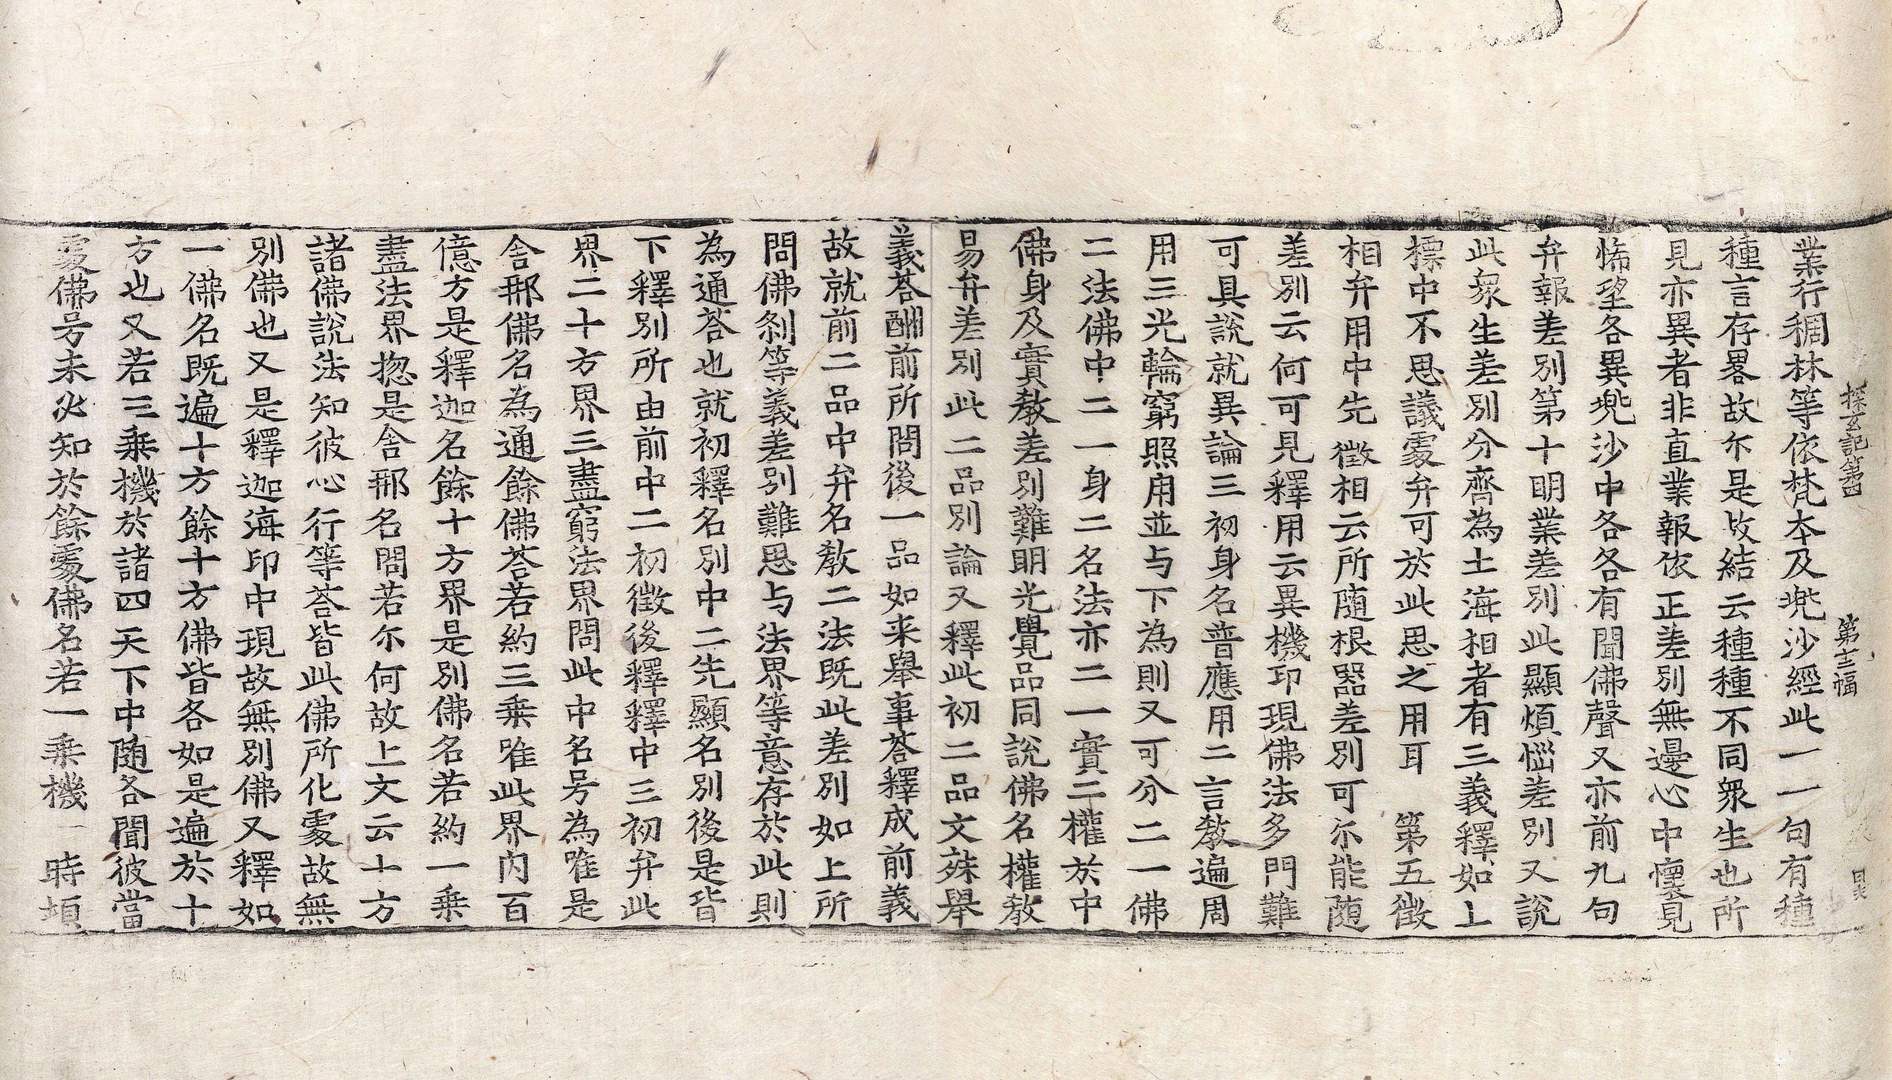 探玄記第四　第十三幅
業行稠林等依梵本及兠沙經此一一句有種
種言存畧故尒是故結云種種不同衆生也所
見亦異者非直業報依正差別無邊心中懷見
悕望各異兠沙中各各有聞佛聲又亦前九句
弁報差別第十明業差別此顯煩惱差別又說
此衆生差別分齊為土海相者有三義釋如上
標中不思議䖏弁可於此思之用耳　第五徵
相弁用中先徵相云所随根器差別可尒能随
差別云何可見釋用云異機印現佛法多門難
可具說就異論三初身名普應用二言教遍周
用三光輪窮照用並与下為則又可分二一佛
二法佛中二一身二名法亦二一實二權於中
佛身及實教差別難明光覺品同說佛名權教
易弁差別此二品別論又釋此初二品文殊舉
義荅酬前所問後一品如来舉事荅釋成前義
故就前二品中弁名教二法既此差別如上所
問佛刹等義差別難思与法界等意存於此則
為通荅也就初釋名別中二先顯名別後是皆
下釋別所由前中二初徵後釋釋中三初弁此
界二十方界三盡窮法界問此中名号為唯是
舎那佛名為通餘佛荅若約三乗唯此界内百
億方是釋迦名餘十方界是別佛名若約一乗
盡法界揔是舎那名問若尒何故上文云十方
諸佛說法知彼心行等荅皆此佛所化䖏故無
別佛也又是釋迦海印中現故無別佛又釋如
一佛名既遍十方餘十方佛皆各如是遍於十
方也又若三乗機於諸四天下中随各聞彼當
䖏佛号未必知於餘䖏佛名若一乗機一時頓